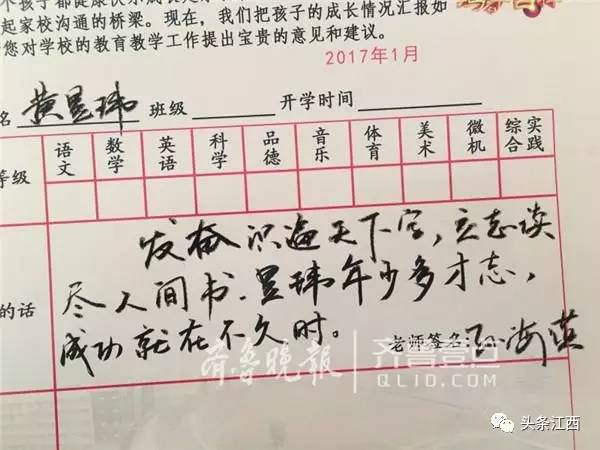 个孩子都健康快乐成长是
起家校沟通的桥梁。现在，我们把孩子的成长情况汇报如
您对学校的教育教学工作提出宝贵的意见和建议。
2017年1月
名 黄昱玮 班级 开学时间
等级 语文 数学 英语 科学 品德 音乐 体育 美术 微机 综合实践
发奋识遍天下字，立志读
尽人间书.昱玮年少多才志，
的话
成功就在不久时。
老师签名：孙海英
齐鲁晚报 齐鲁壹点
QLID.COM
头条江西